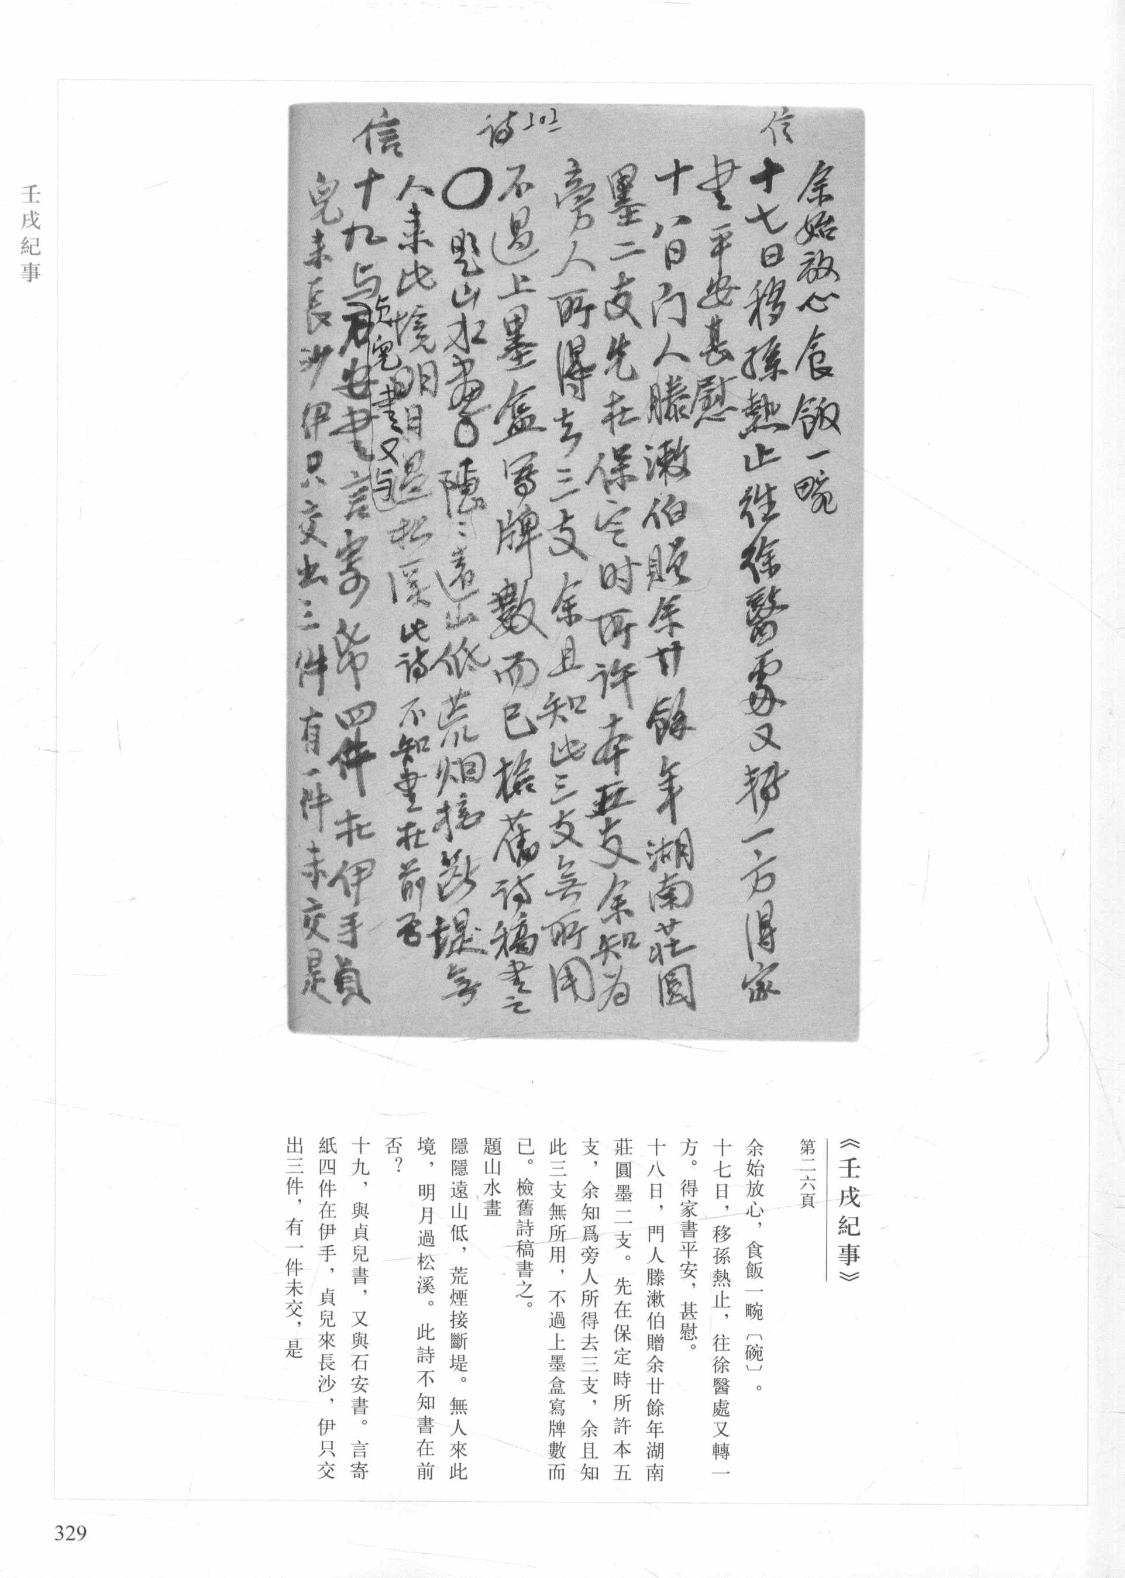 壬戌紀事
信
余始放心食飯一畹
十七日移孫熱止往徐醫處又轉一方得家
書平安甚慰
十八日門人滕漱伯贈余廿餘年湖南莊圓
墨二支先在保定時所許本五支余知为
旁人所得去三支余且知此三支無所用
詩
不過上墨盒寫牌數而已檢舊詩稿書之
〇題山水畫隱〻遠山低荒烟接斷堤無
人來此境明月過松溪此詩不知書在前否
信
十九与貞兒書又与石安書言寄紙四件在伊手貞
兒來長沙伊只交出三件有一件未交是
《壬戌紀事》
第二六頁
余始放心，食飯一畹〔碗〕。
十七日，移孫熱止，往徐醫處又轉一
方。得家書平安，甚慰。
十八日，門人滕漱伯贈余廿餘年湖南
莊圓墨二支。先在保定時所許本五
支，余知爲旁人所得去三支，余且知
此三支無所用，不過上墨盒寫牌數而
已。檢舊詩稿書之。
題山水畫
隱隱遠山低，荒煙接斷堤。無人來此
境，明月過松溪。此詩不知書在前
否？
十九，與貞兒書，又與石安書。言寄
紙四件在伊手，貞兒來長沙，伊只交
出三件，有一件未交，是
329